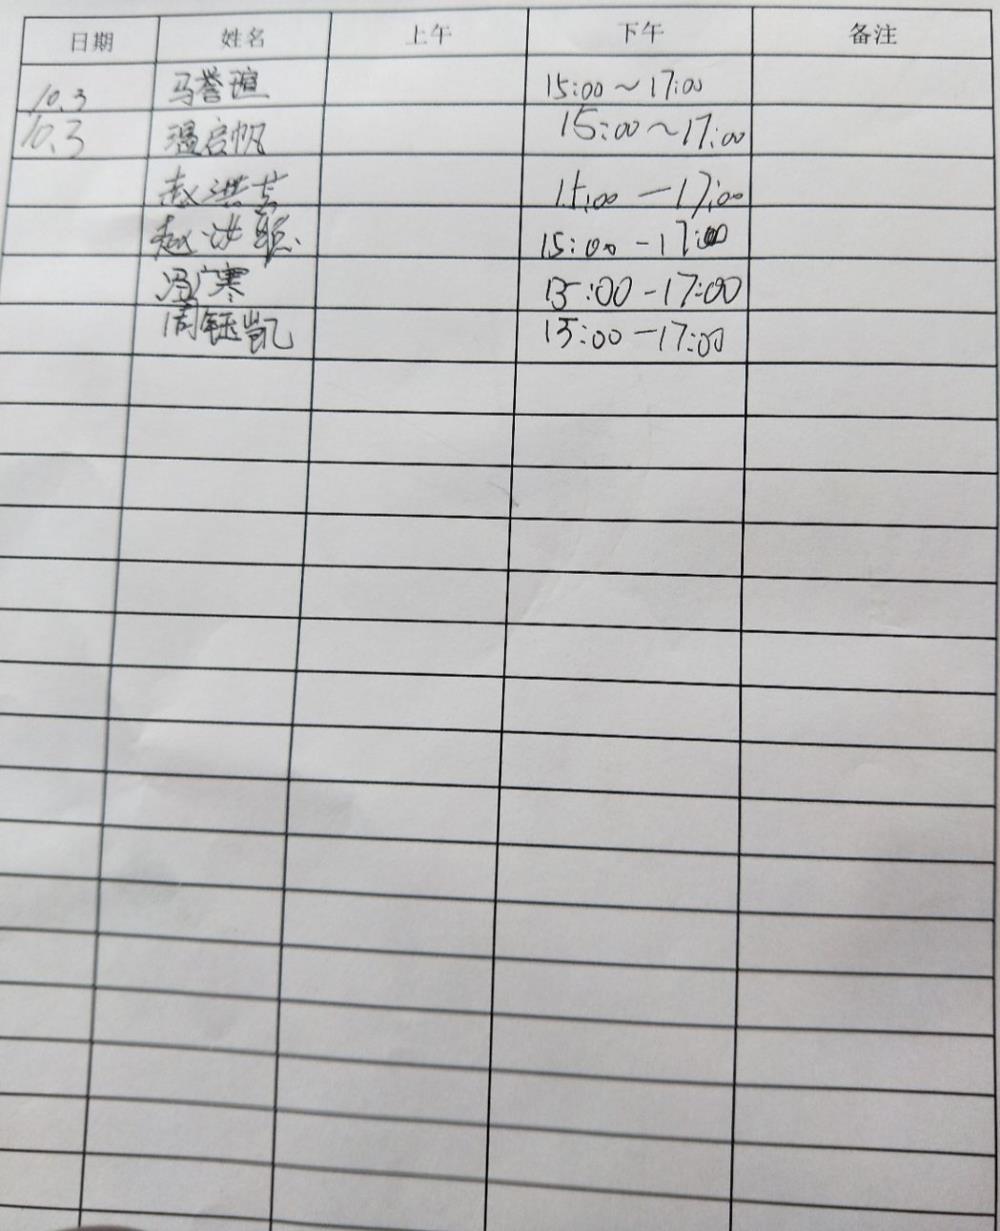 日期 姓名 上午 下午 备注
10.3 马誉瑄 15:00~17:00
10.3 温启帆 15:00~17:00
赵洪 15:00-17:00
赵洪聪 15:00-17:00
冯广寒 15:00-17:00
周钰凯 15:00-17:00